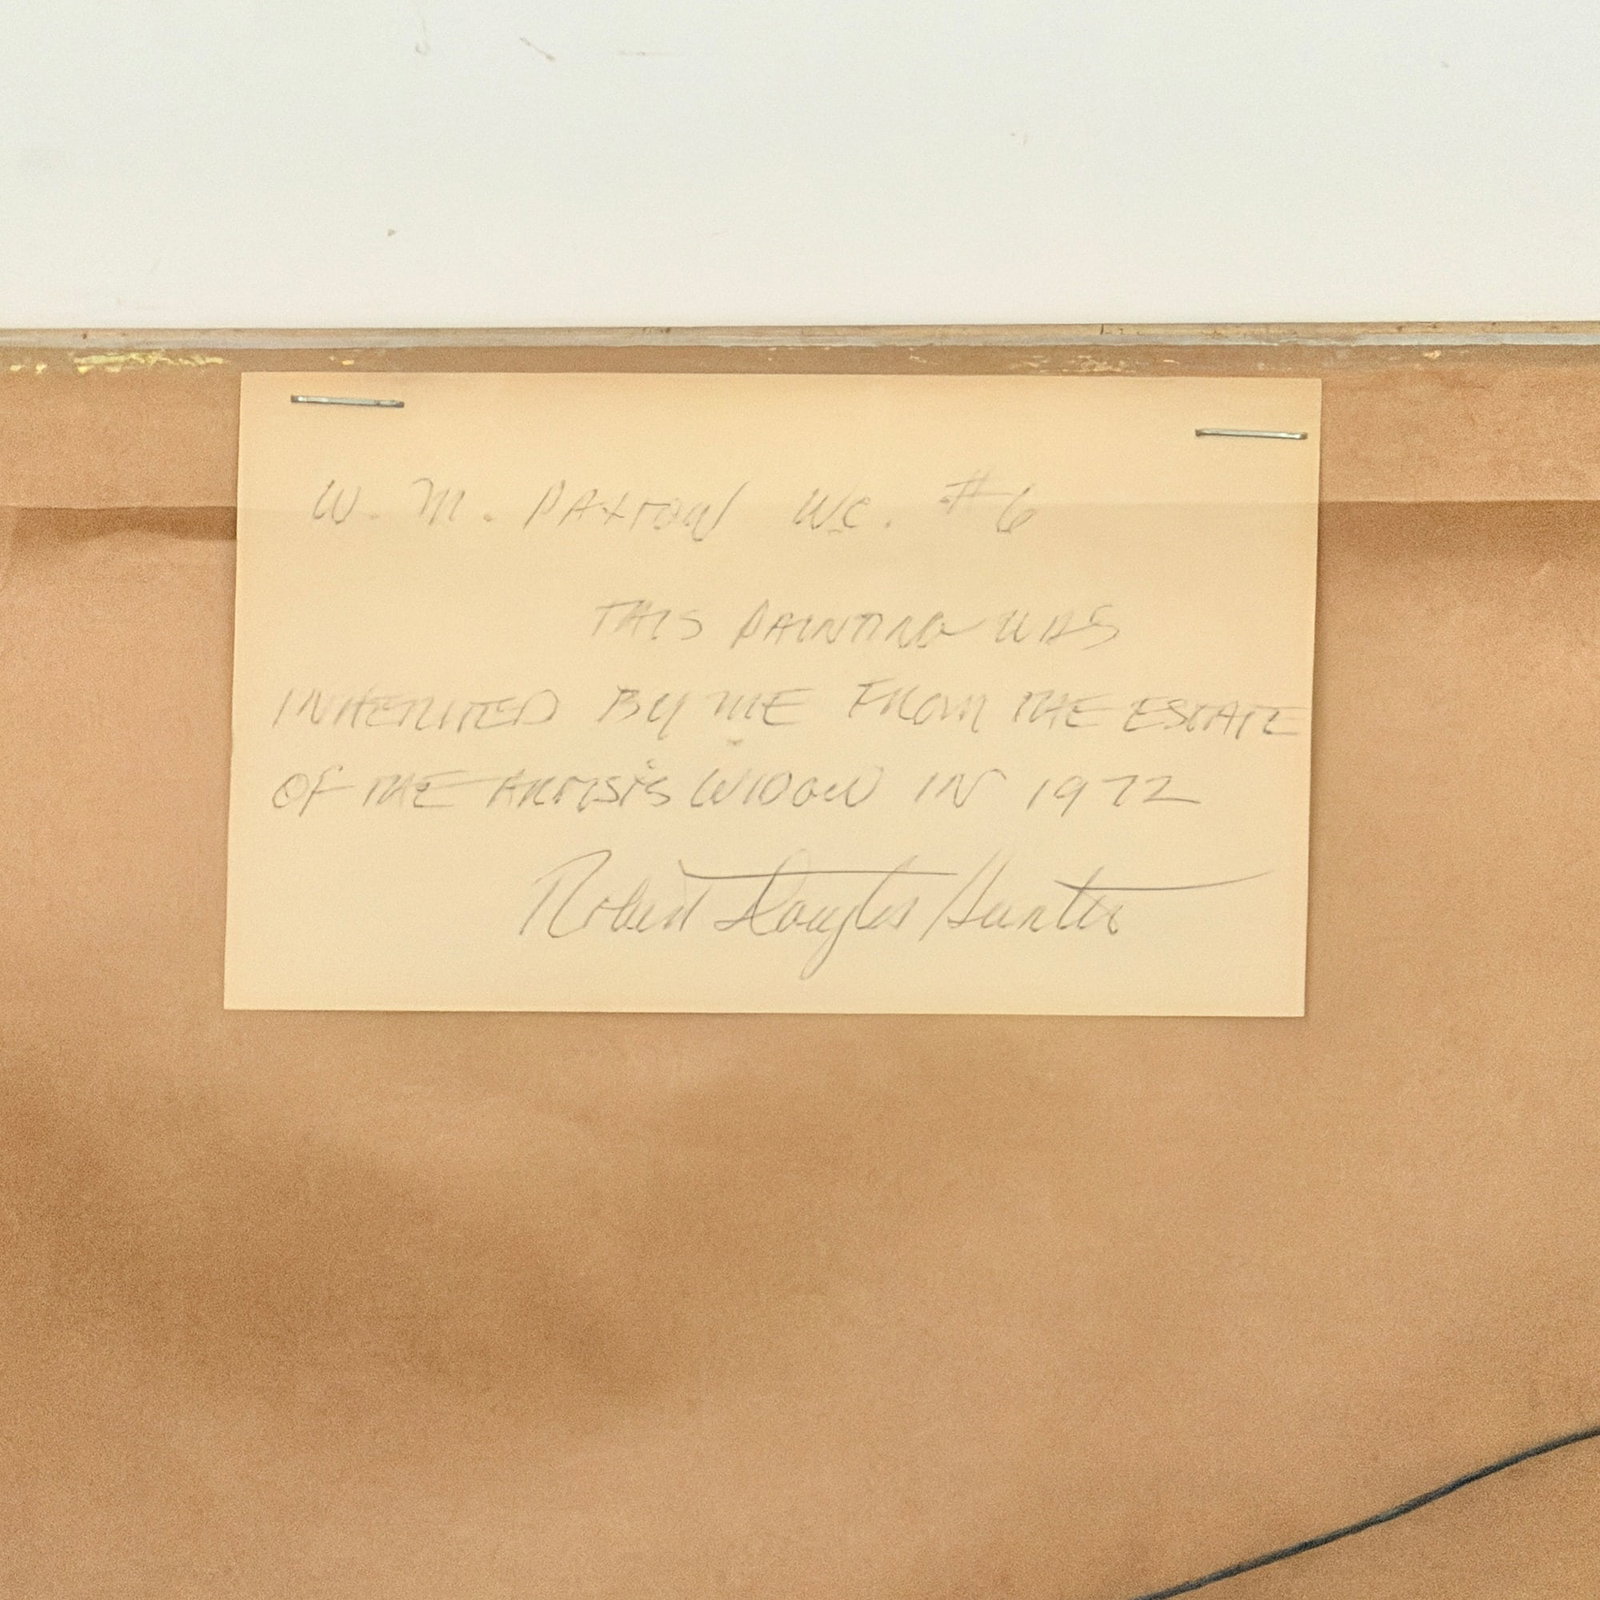 W. M. PAXTON WC. #6
THIS PAINTING WAS
INHERITED BY ME FROM THE ESTATE
OF THE ARTIST'S WIDOW IN 1972
Robert Douglas Hunter